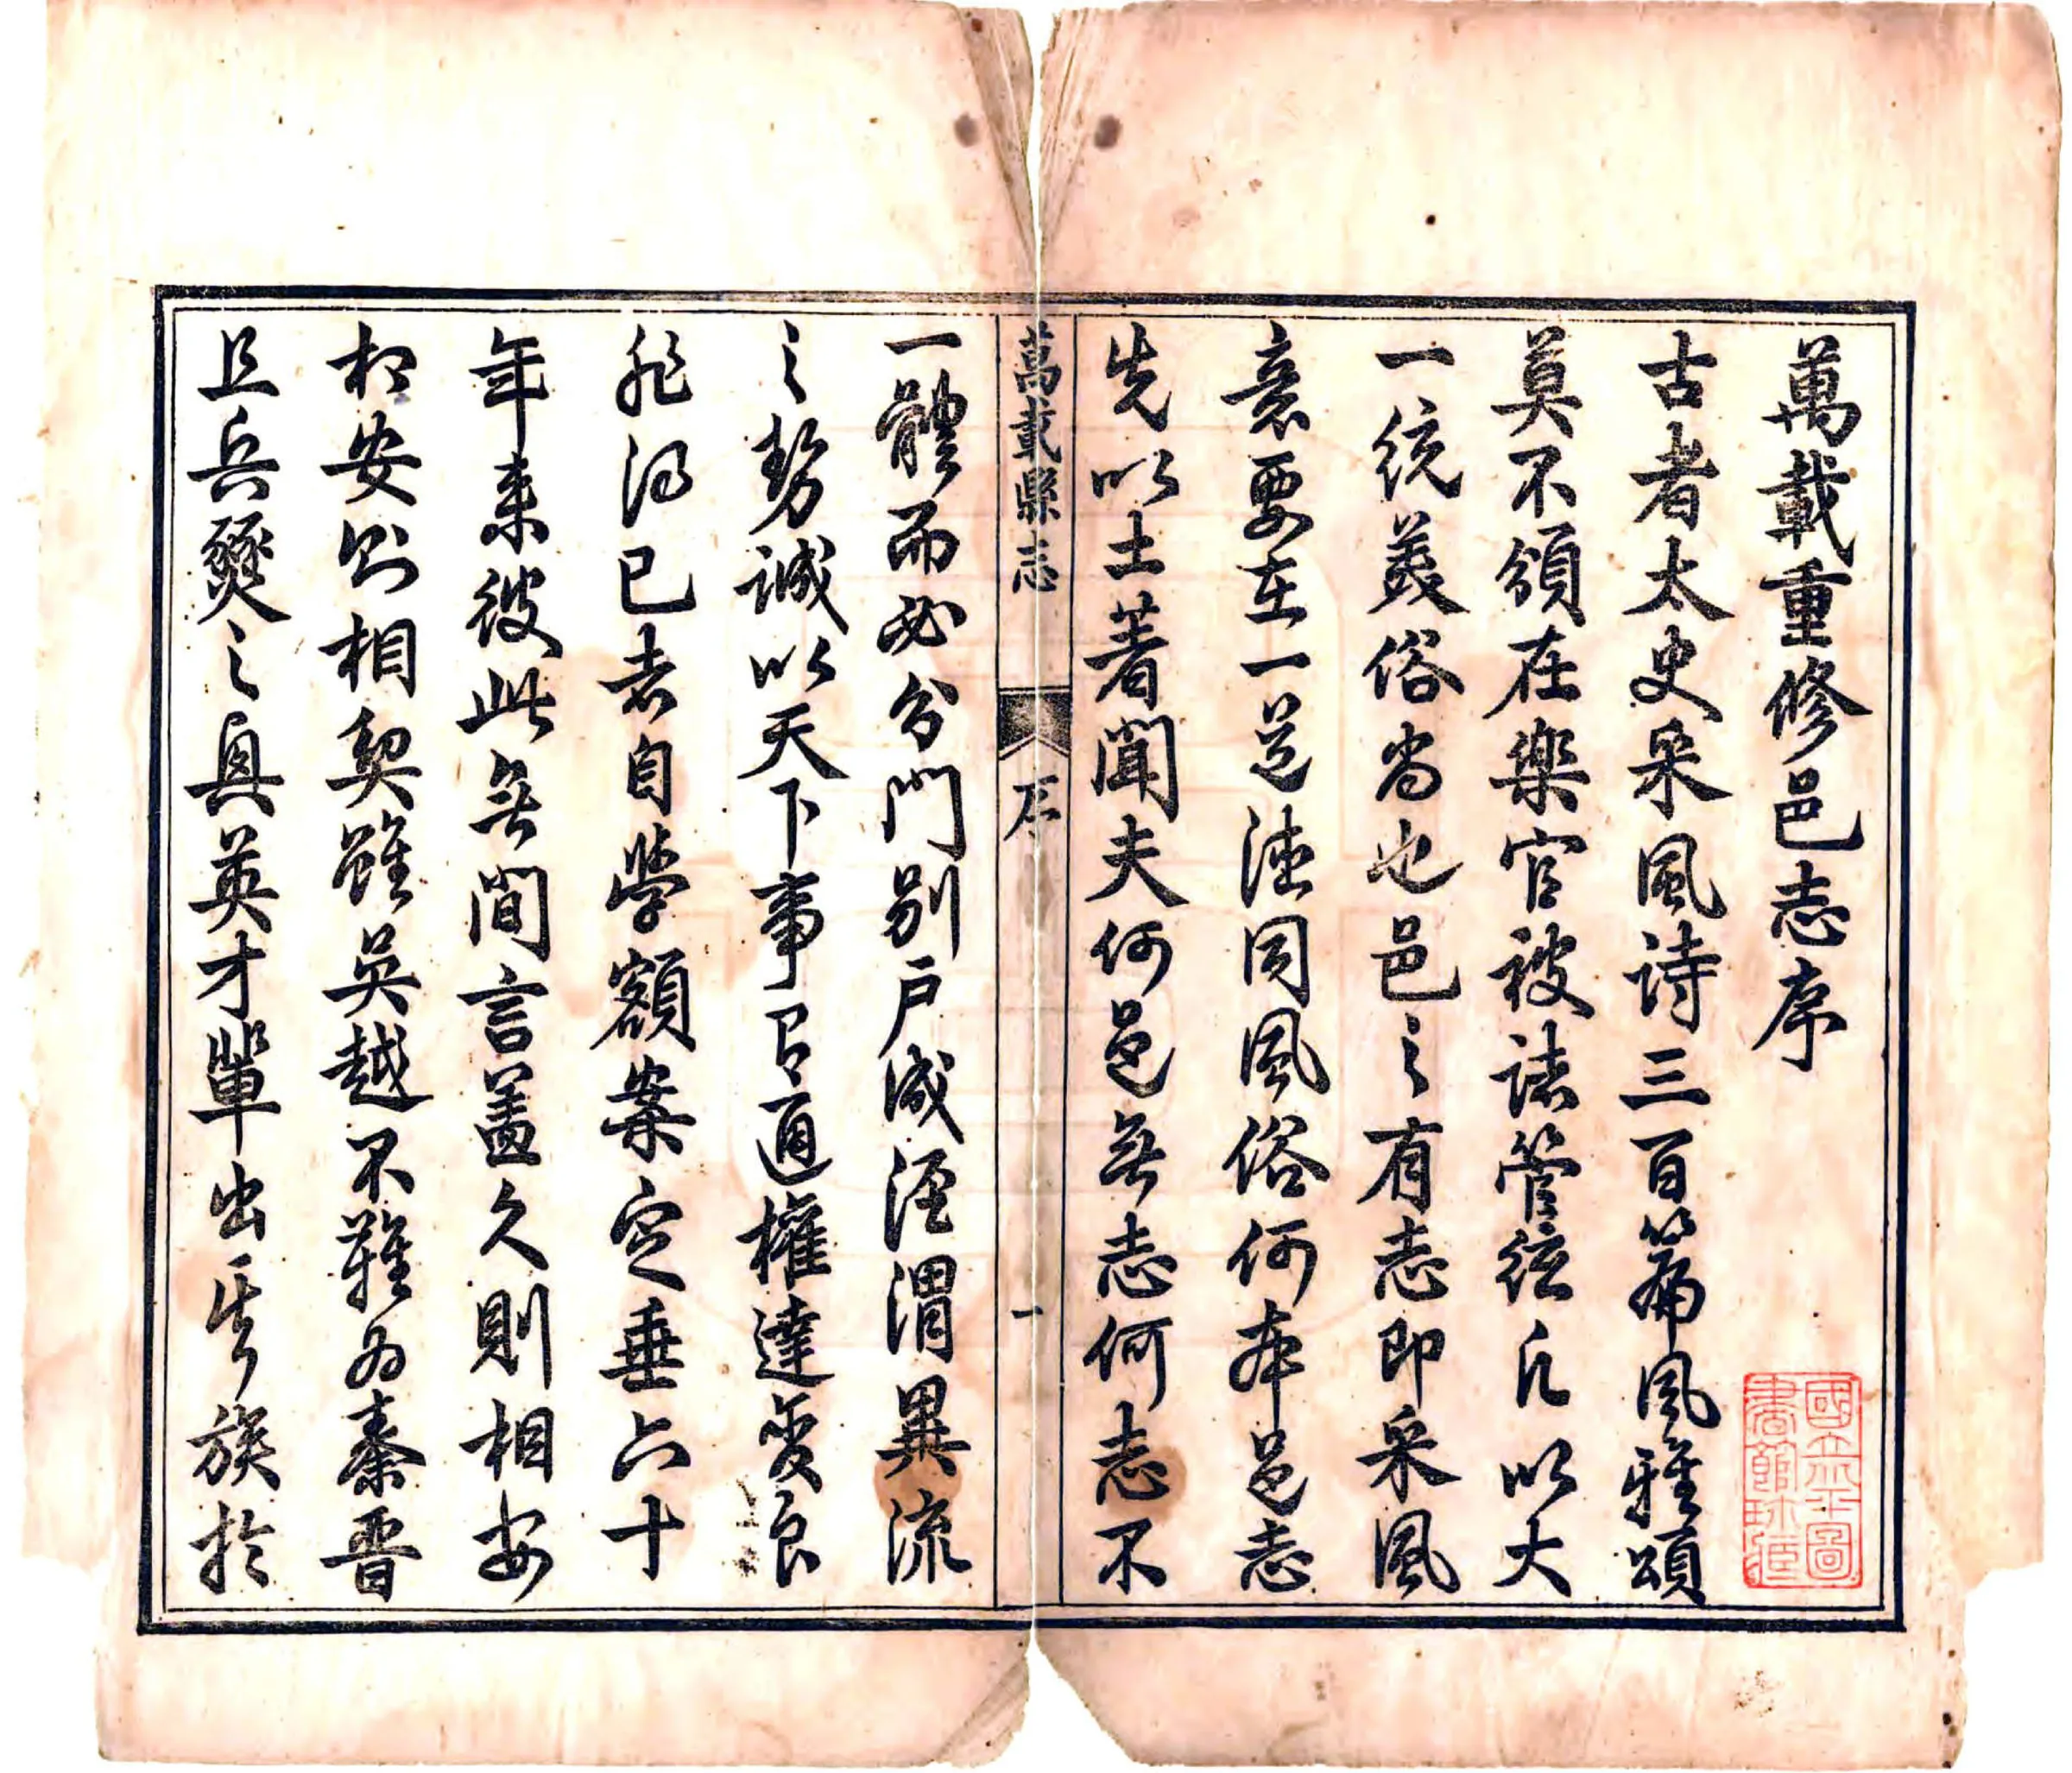 萬載重修邑志序
古者太史采風詩三百篇風雅頌
莫不領在樂官被諸管絃凡以大
一統美俗尚也邑之有志即采風
意要在一道德同風俗何本邑志
先以土著聞夫何邑無志何志不
萬載縣志
序
一
一體而必分門別戶咸涇渭異流
之勢誠以天下事有通權達變良
非得已者自學額案定垂六十
年来彼此無間言蓋久則相安
相安則相契雖吳越不難為秦晉
且兵燹之與英才輩出其族於
國立北平圖
書館珍藏